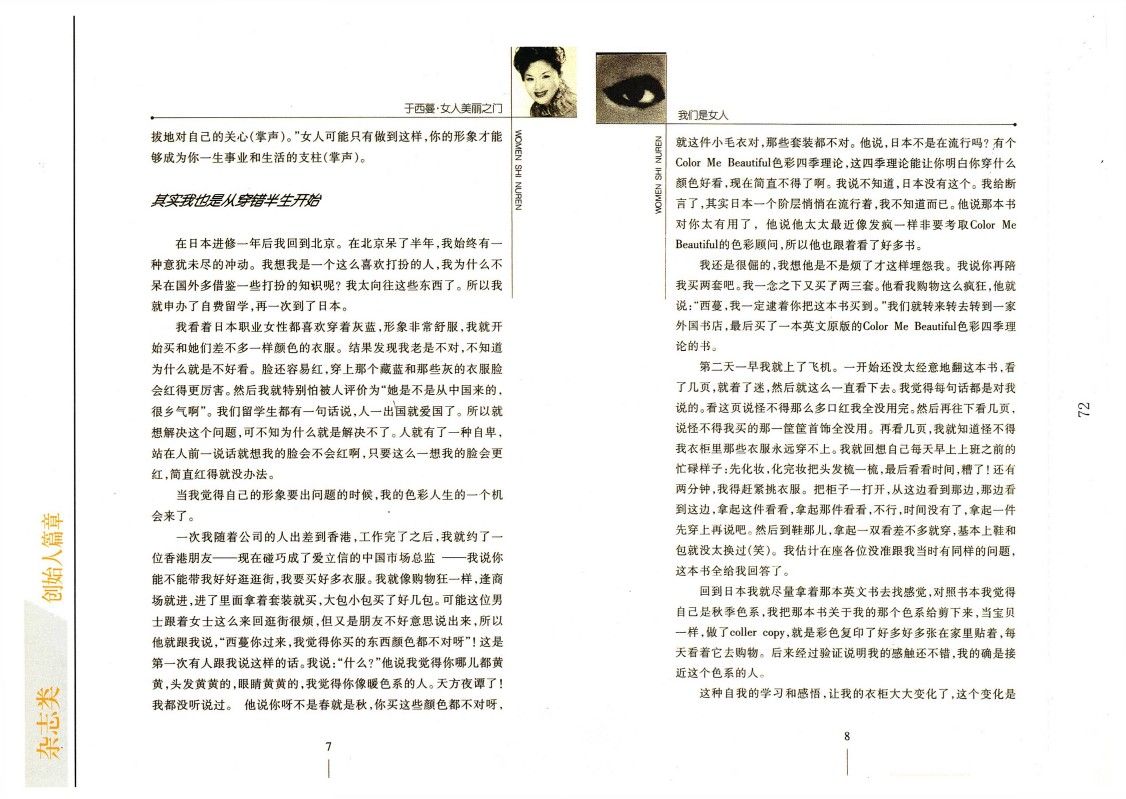 于西蔓·女人美丽之门
WOMEN SHI NUREN
拔地对自己的关心(掌声)。”女人可能只有做到这样,你的形象才能
够成为你一生事业和生活的支柱(掌声)。
其实我也是从穿错半生开始
在日本进修一年后我回到北京。在北京呆了半年,我始终有一
种意犹未尽的冲动。我想我是一个这么喜欢打扮的人,我为什么不
呆在国外多借鉴一些打扮的知识呢?我太向往这些东西了。所以我
就申办了自费留学,再一次到了日本。
我看着日本职业女性都喜欢穿着灰蓝,形象非常舒服,我就开
始买和她们差不多一样颜色的衣服。结果发现我老是不对,不知道
为什么就是不好看。脸还容易红,穿上那个藏蓝和那些灰的衣服脸
会红得更厉害。然后我就特别怕被人评价为“她是不是从中国来的,
很乡气啊”。我们留学生都有一句话说,人一出国就爱国了。所以就
想解决这个问题,可不知为什么就是解决不了。人就有了一种自卑,
站在人前一说话就想我的脸会不会红啊,只要这么一想我的脸会更
红,简直红得就没办法。
当我觉得自己的形象要出问题的时候,我的色彩人生的一个机
会来了。
一次我随着公司的人出差到香港,工作完了之后,我就约了一
位香港朋友——现在碰巧成了爱立信的中国市场总监 ——我说你
能不能带我好好逛逛街,我要买好多衣服。我就像购物狂一样,逢商
场就进,进了里面拿着套装就买,大包小包买了好几包。可能这位男
士跟着女士这么来回逛街很烦,但又是朋友不好意思说出来,所以
他就跟我说,“西蔓你过来,我觉得你买的东西颜色都不对呀”!这是
第一次有人跟我说这样的话。我说:“什么?”他说我觉得你哪儿都黄
黄,头发黄黄的,眼睛黄黄的,我觉得你像暖色系的人。天方夜谭了!
我都没听说过。 他说你呀不是春就是秋,你买这些颜色都不对呀,
7
我们是女人
WOMEN SHI NUREN
就这件小毛衣对,那些套装都不对。他说,日本不是在流行吗?有个
Color Me Beautiful色彩四季理论,这四季理论能让你明白你穿什么
颜色好看,现在简直不得了啊。我说不知道,日本没有这个。我给断
言了,其实日本一个阶层悄悄在流行着,我不知道而已。他说那本书
对你太有用了, 他说他太太最近像发疯一样非要考取Color Me
Beautiful的色彩顾问,所以他也跟着看了好多书。
我还是很倔的,我想他是不是烦了才这样埋怨我。我说你再陪
我买两套吧。我一念之下又买了两三套。他看我购物这么疯狂,他就
说:“西蔓,我一定逮着你把这本书买到。”我们就转来转去转到一家
外国书店,最后买了一本英文原版的Color Me Beautiful色彩四季理
论的书。
第二天一早我就上了飞机。一开始还没太经意地翻这本书,看
了几页,就着了迷,然后就这么一直看下去。我觉得每句话都是对我
说的。看这页说怪不得那么多口红我全没用完。然后再往下看几页,
说怪不得我买的那一筐筐首饰全没用。再看几页,我就知道怪不得
我衣柜里那些衣服永远穿不上。我就回想自己每天早上上班之前的
忙碌样子:先化妆,化完妆把头发梳一梳,最后看看时间,糟了!还有
两分钟,我得赶紧挑衣服。把柜子一打开,从这边看到那边,那边看
到这边,拿起这件看看,拿起那件看看,不行,时间没有了,拿起一件
先穿上再说吧。然后到鞋那儿,拿起一双看差不多就穿,基本上鞋和
包就没太换过(笑)。我估计在座各位没准跟我当时有同样的问题,
这本书全给我回答了。
回到日本我就尽量拿着那本英文书去找感觉,对照书本我觉得
自己是秋季色系,我把那本书关于我的那个色系给剪下来,当宝贝
一样,做了coller copy,就是彩色复印了好多好多张在家里贴着,每
天看着它去购物。后来经过验证说明我的感触还不错,我的确是接
近这个色系的人。
这种自我的学习和感悟,让我的衣柜大大变化了,这个变化是
8
72
创始人篇章
杂志类